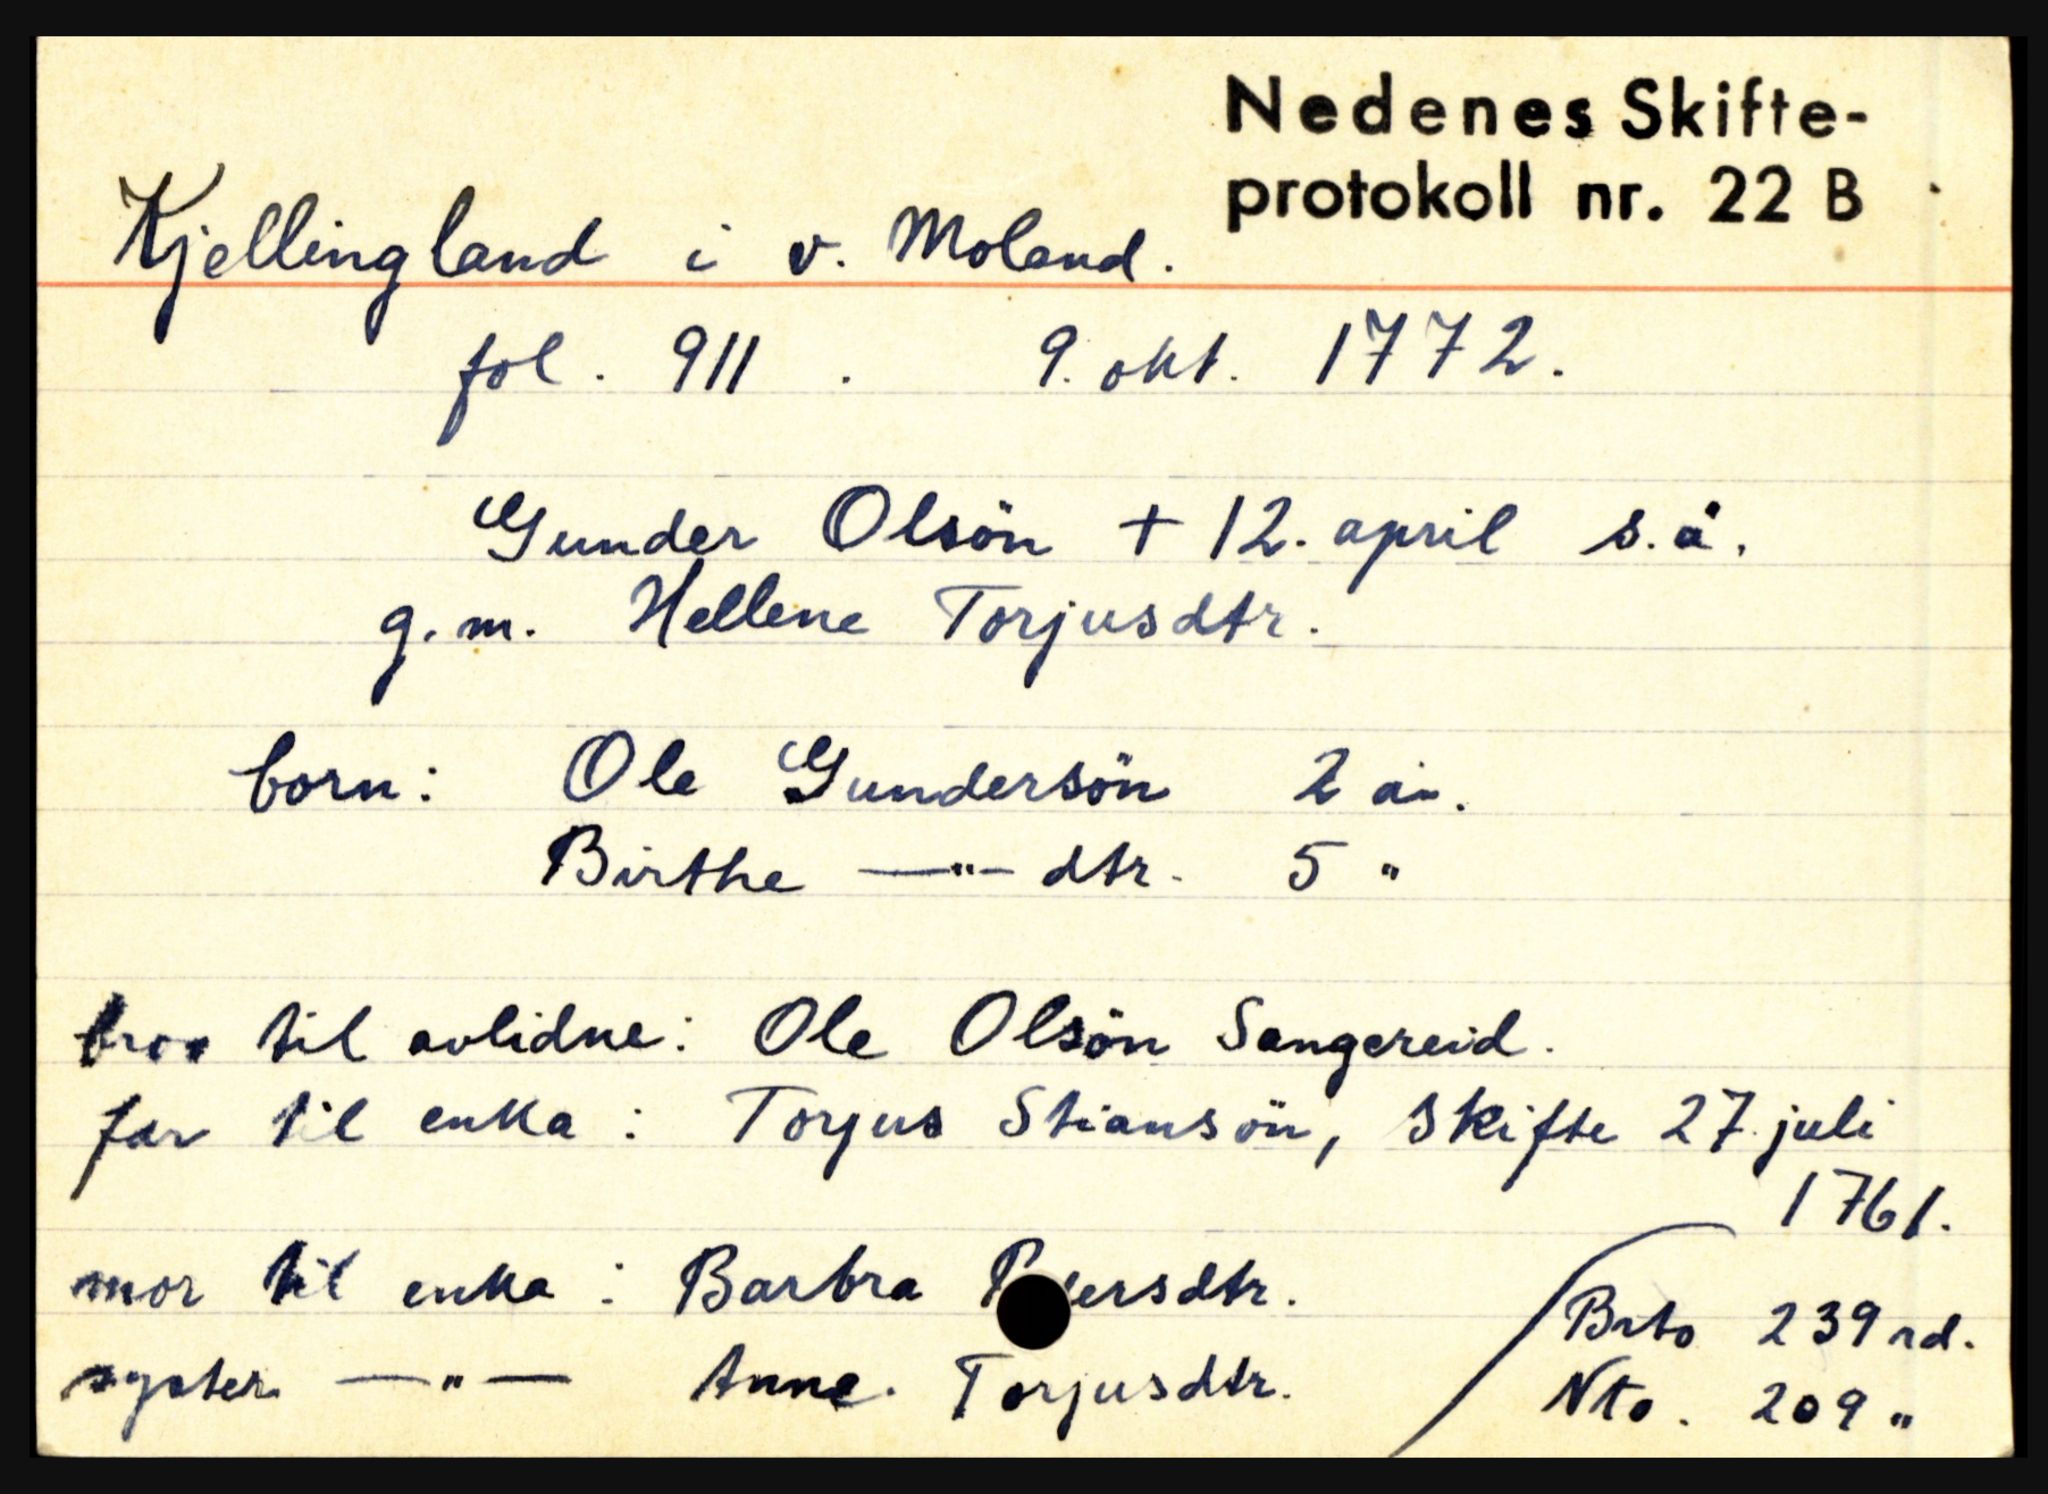 Nedenes Skifte-
protokoll nr. 22 B
Kjellingland i v. Moland.
fol. 911. 9. okt. 1772.
Gunder Olsön + 12. april s.å.
g.m. Hellene Torjusdtr.
born: Ole Gundersön 2 år.
Birthe —"— dtr. 5 "
bror til avlidne: Ole Olsön Sangereid.
far til enka: Torjus Stiansön, skifte 27. juli
1761.
mor til enka: Barbra
syster —"— Anne Torjusdtr.
Brto 239 rd.
Nto. 209 "